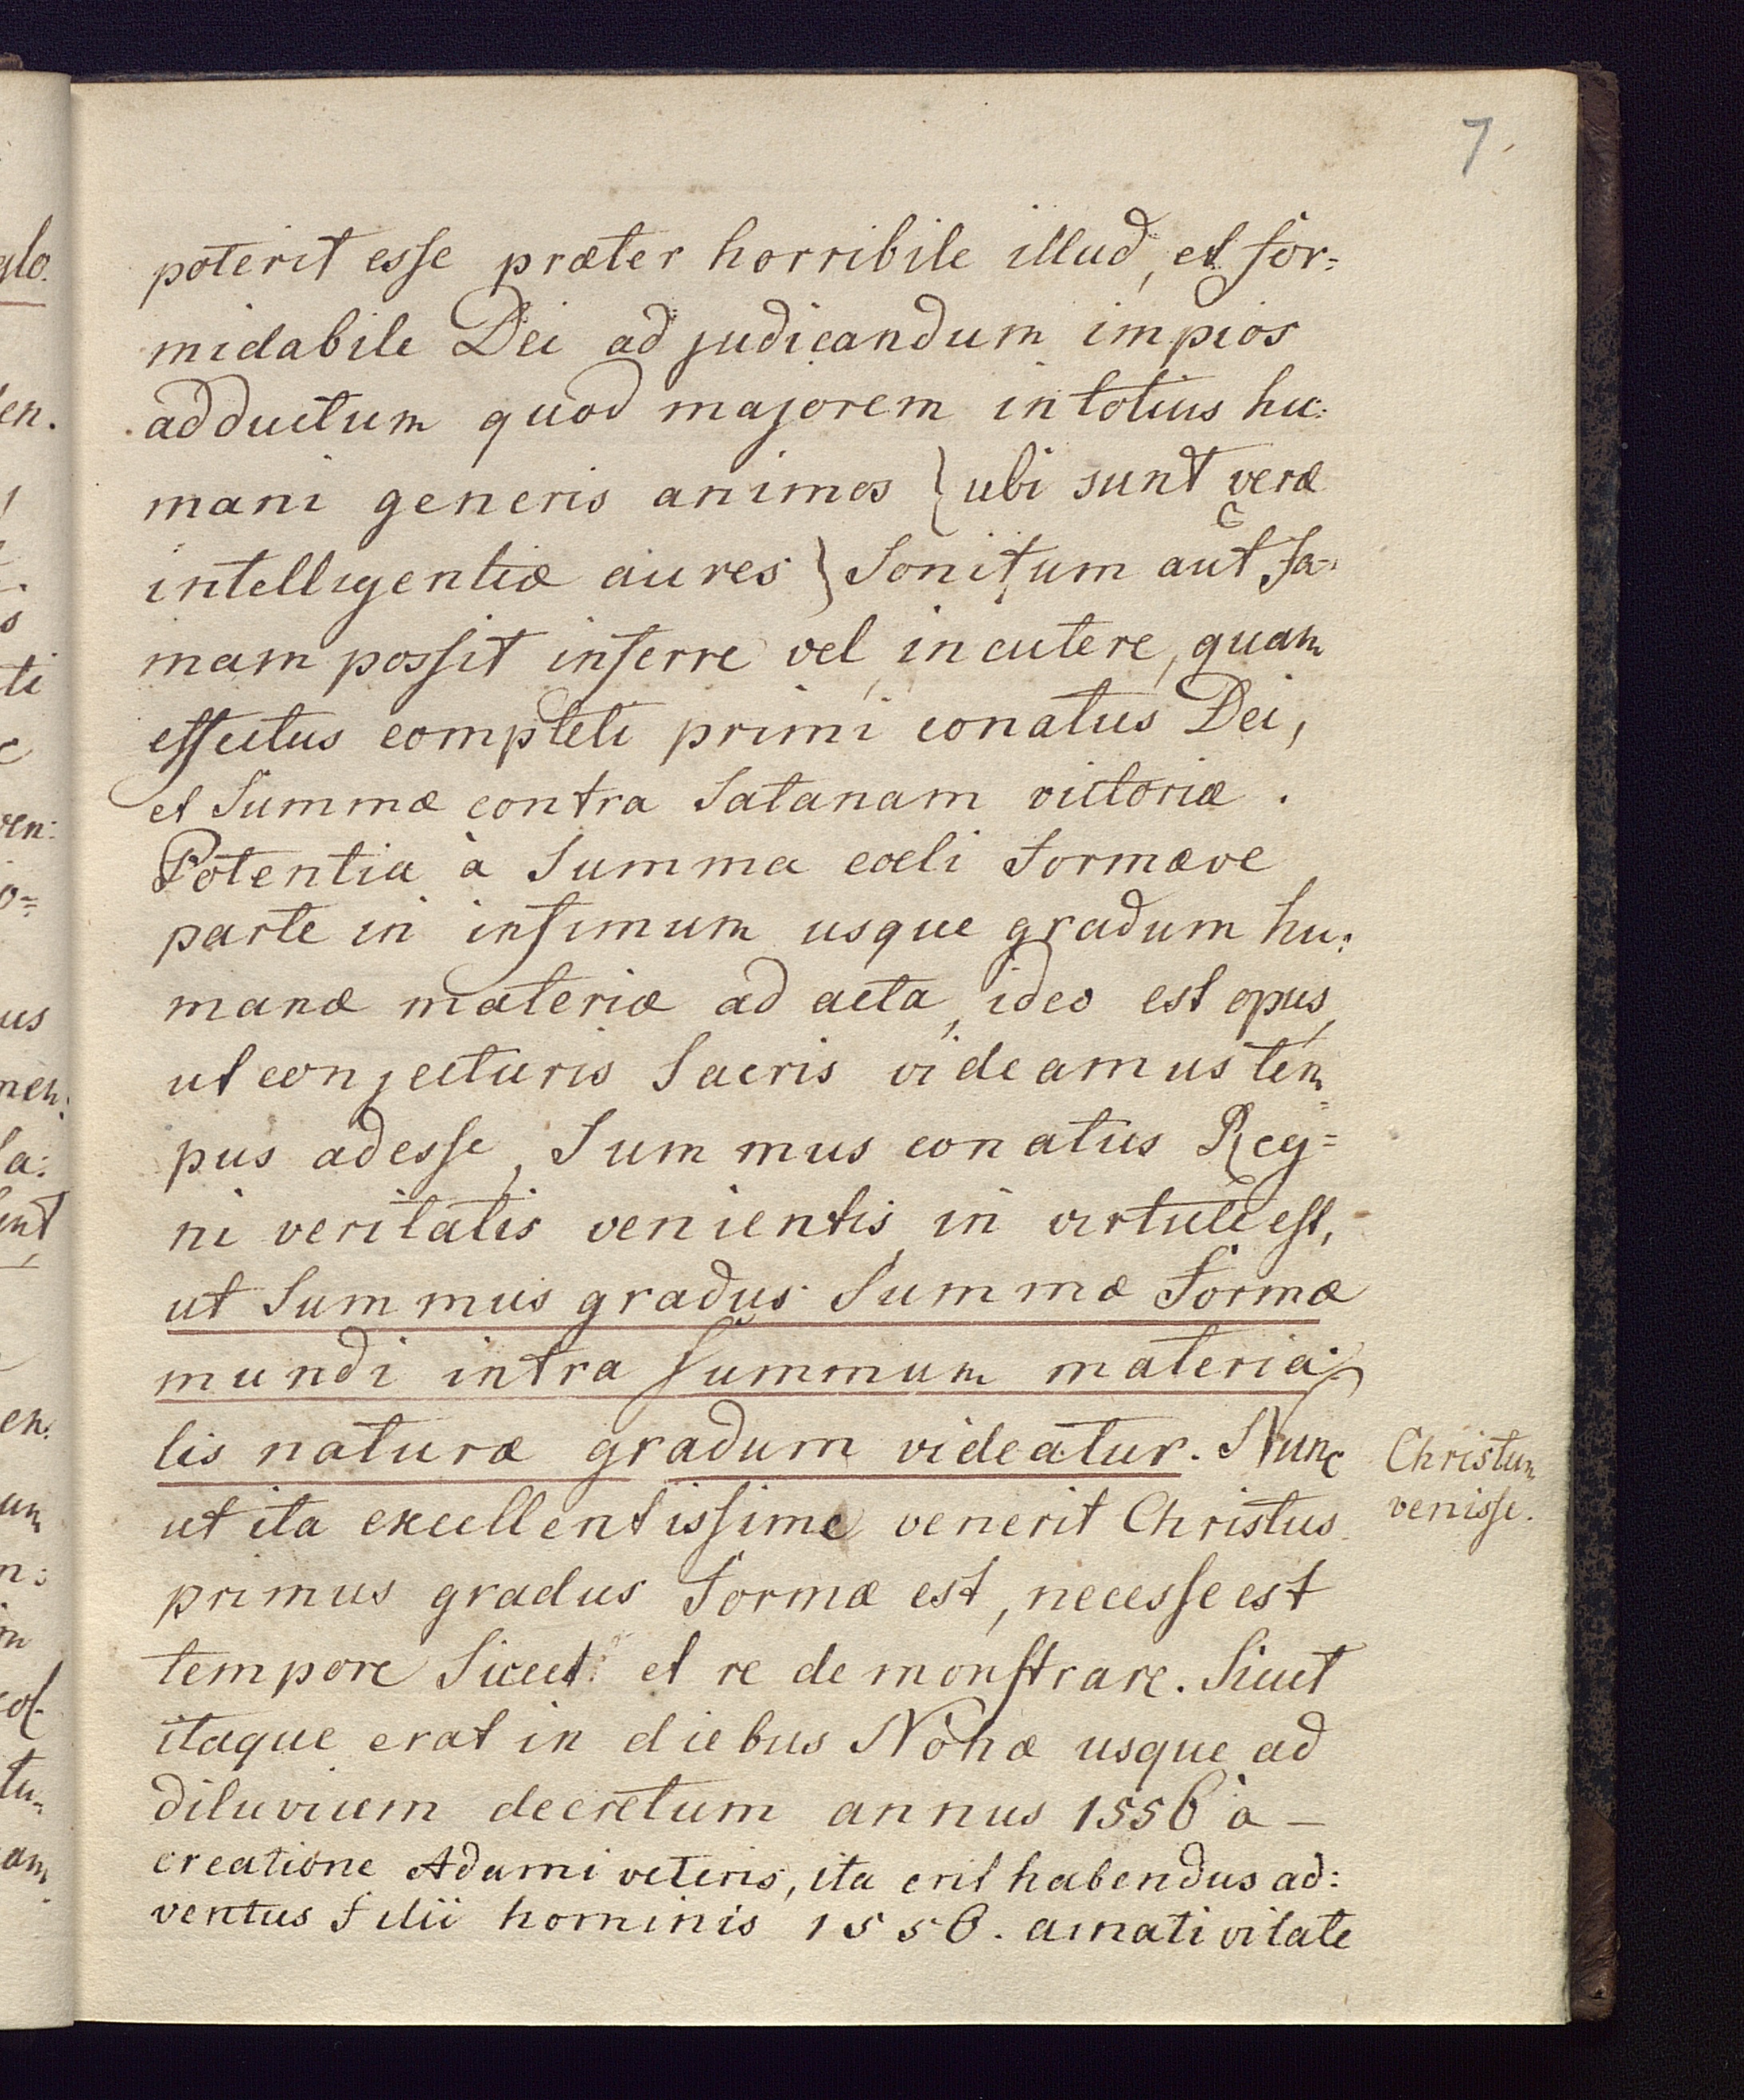 7.
poterit esse præter horribile illud, et for=
midabile Dei ad judicandum impios
adductum quod majorem in totius hu:
mani generis animos } ubi sunt veræ
intelligentiæ aures } Sonitum aut fa:
mam possit inferre vel incutere, quam
effectus completi primi conatus Dei,
et Summæ contra Satanam victoriæ.
Potentia à Summa coeli formæve
parte in infimum usque gradum hu:
manæ materiæ ad acta, ideo est opus,
ut conjecturis Sacris videamus tem=
pus adesse, Summus conatus Reg=
ni veritatis venientis in virtute est,
ut Summus gradus Summæ formæ
mundi intra Summum materia:
lis naturæ gradum videatur. Nunc
Christum
venisse.
ut ita excellentissime venerit Christus
primus gradus formæ est, necesse est
tempore Sicut et re demonstrare. Sicut
itaque erat in diebus Nohæ usque ad
diluvium decretum annus 1556 à –
creatione Adami veteris, ita erit habendus ad:
ventus filii hominis 1556. a nativitate